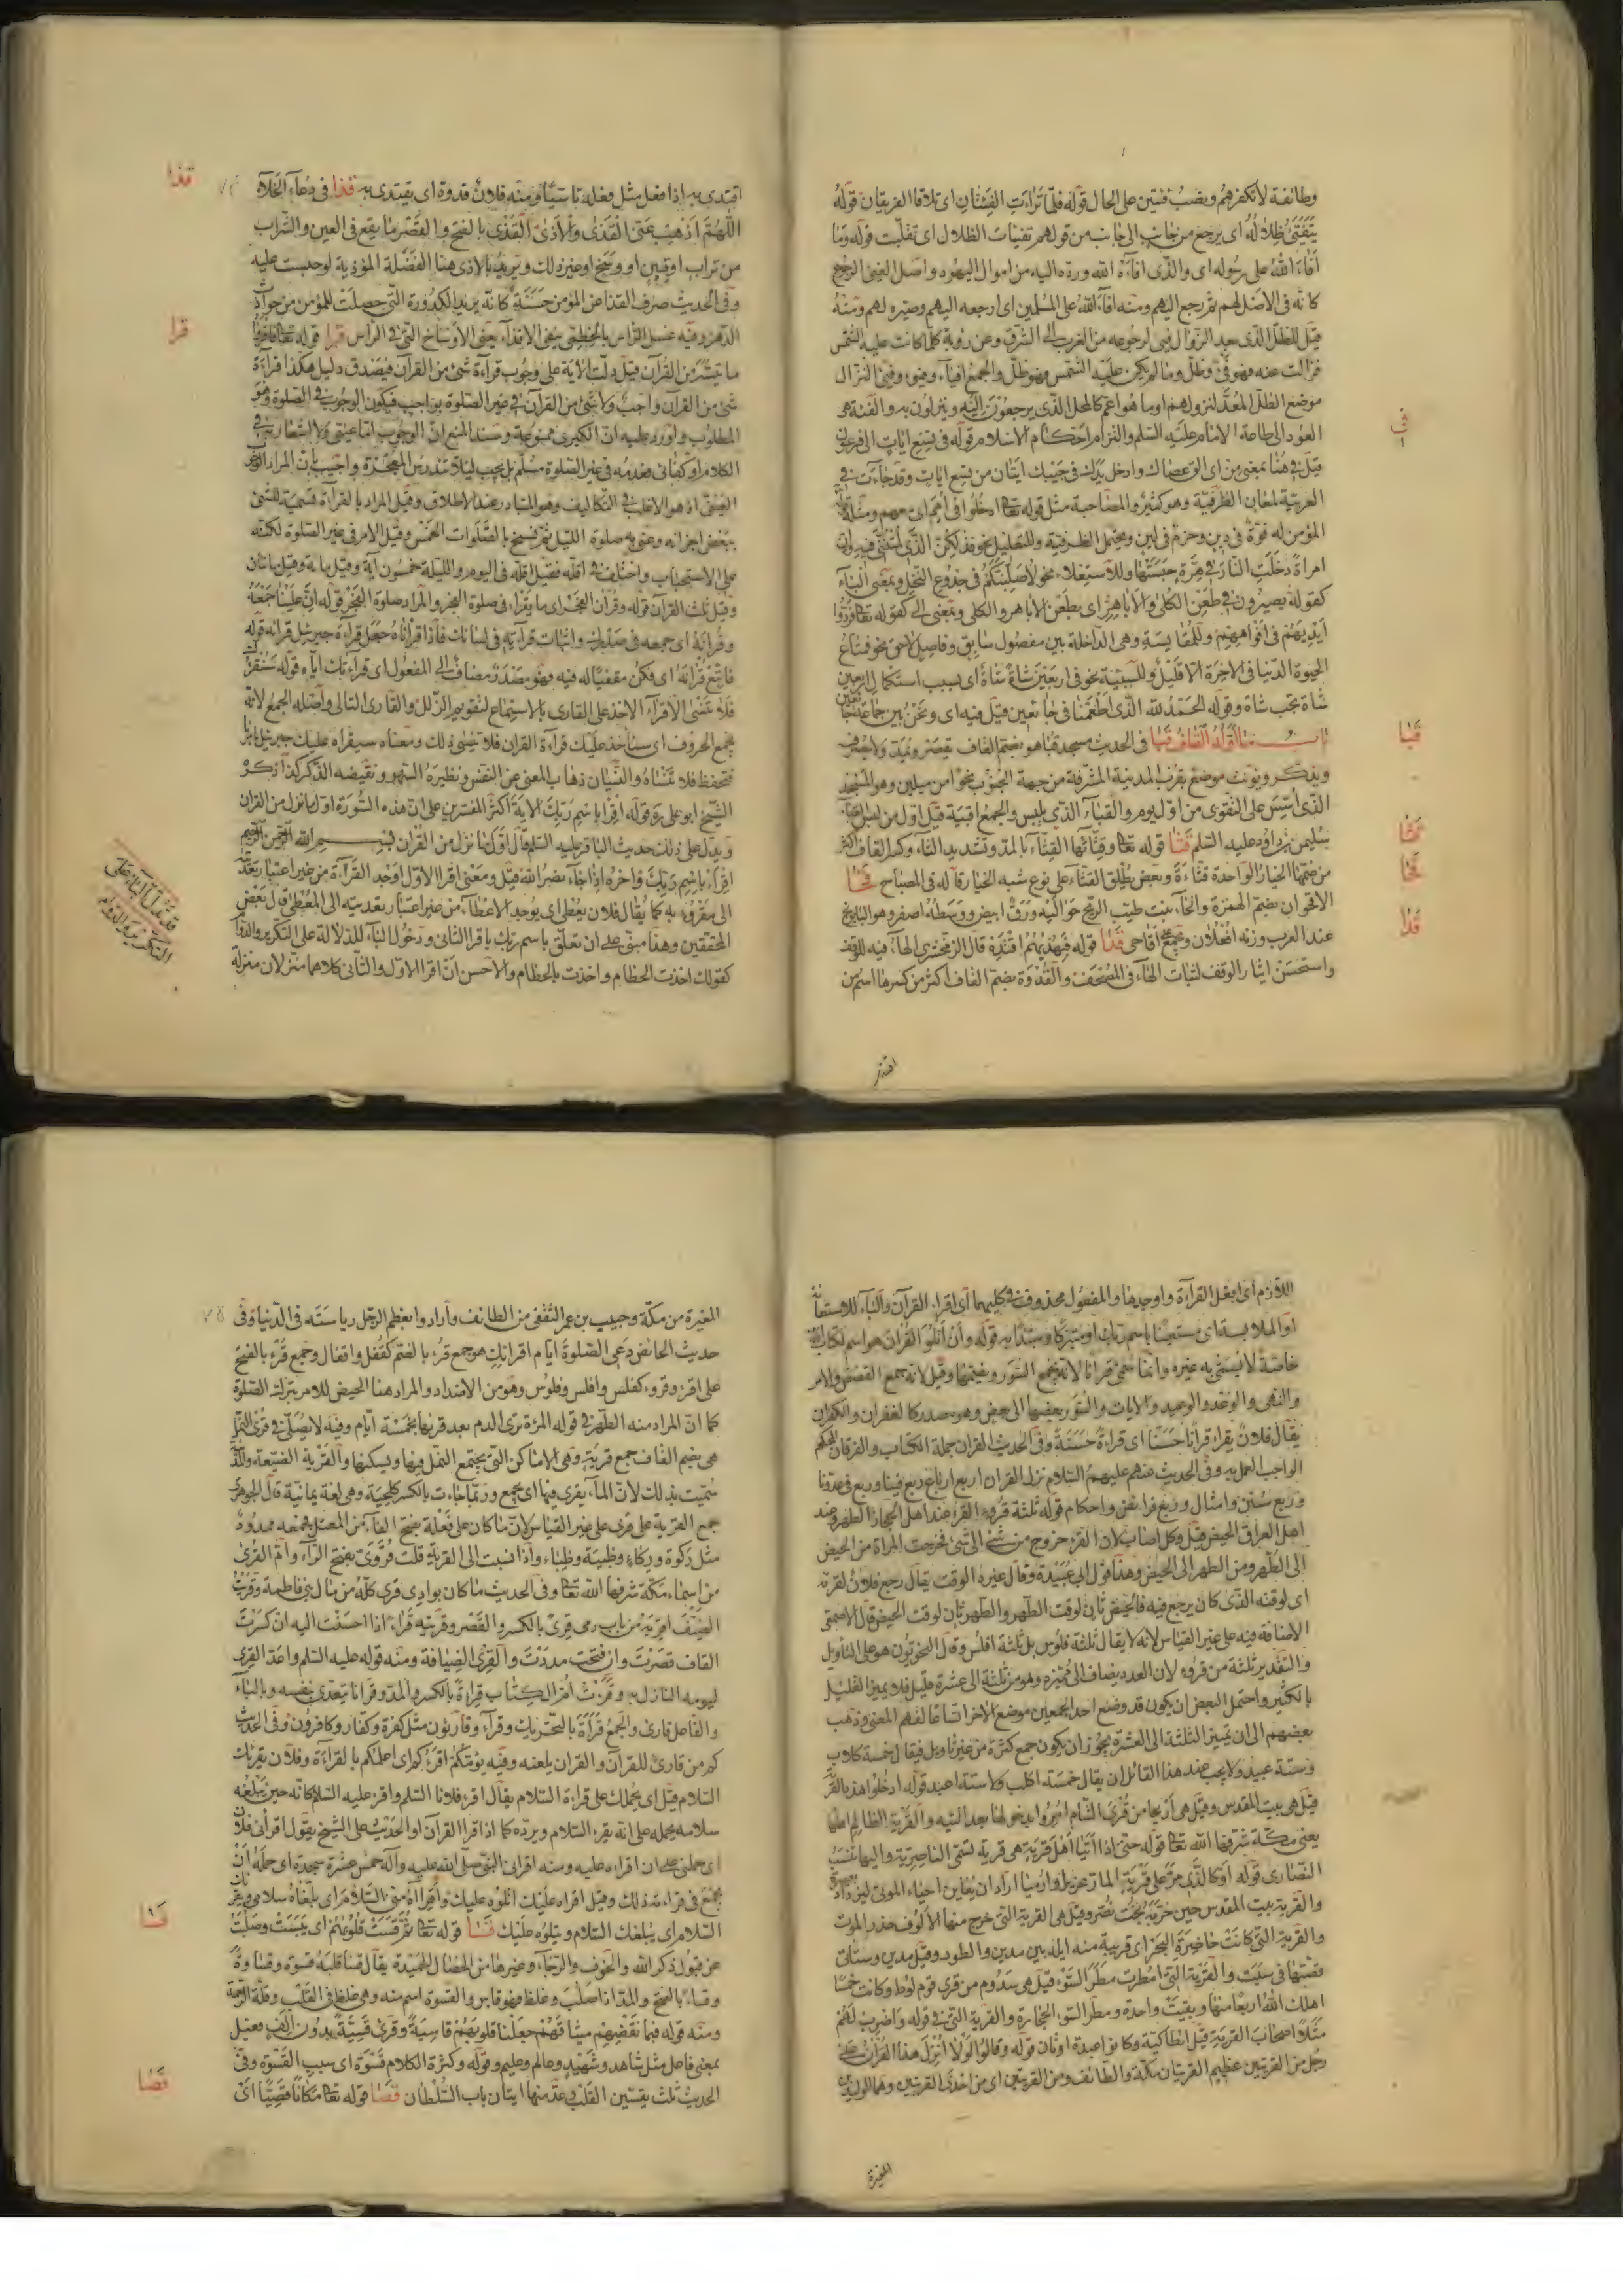 وطائفة لا تكفرهم ونصب فئتين على الحال قوله فلما تراءت الفئتان اى تلاقا الفريقان قوله
يتفيؤ ظلاله اى يرجع من جانب الى جانب من قولهم تفيات الظلال اى تقلبت قوله وما
أفاء الله على رسوله اى والذى افاءه الله ورده اليه من اموال اليهود واصل الفئ الرجوع
كانه فى الاصل لهم ثم رجع اليهم ومنه افاء الله على المسلمين اى ارجعه اليهم وصيره لهم ومنه
قيل للظل الذى بعد الزوال فيئ لرجوعه من الغرب الى الشرق وعن رؤبة كلما كانت عليه الشمس
فزالت عنه فهو فئ وظل وما لم يكن عليه الشمس فهو ظل والجمع افياء وفيوء وفيئ النزال
موضع الظل المعد لنزولهم او ما هو اعم كالمحل الذى يرجعون اليه وينزلون به والفئة هى
العود الى طاعة الامام عليه السلم والتزام احكام الاسلام قوله فى تسع ايات الى فرعون
فى
قيل فى هنا بمعنى من اى الق عصاك وادخل يدك فى جيبك ايتان من تسع ايات وقد جاءت فى
العربية لمعان الظرفية وهو كثير والمصاحبة مثل قوله تعا ادخلوا فى امم اى معهم ومثله
المؤمن له قوة فى دين وحزم فى لين ويحتمل الظرفية وللتعليل نحو فذلكن الذى لمتننى فيه وان
امراة دخلت النار فى هرة حبستها وللاستعلاء نحو لاصلبنكم فى جذوع النخل وبمعنى الباء
كقوله بصيرون فى طعن الكلى والاباهر اى بطعن الاباهر والكلى وبمعنى الى كقوله تعا فردوا
ايديهم فى افواههم وللمقايسة وهى الداخلة بين مفضول سابق وفاضل لاحق نحو فما متاع
الحيوة الدنيا فى الاخرة الا قليل وللسببية نحو فى اربعين شاة شاة اى بسبب استكمال اربعين
شاة تجب شاة وقوله الحمد لله الذى اطعمنا فى جائعين قيل فيه اى ونحن بين جماعة جائعين
باب ما اوله القاف قبا فى الحديث مسجد قبا هو بضم القاف يقصر ويمد ولا يصرف
قبا
ويذكر ويؤنث موضع بقرب المدينة المشرفة من جهة الجنوب نحوا من ميلين وهو المسجد
الذى اسس على التقوى من اول يوم والقباء الذى يلبس والجمع اقبية قيل اول من لبس القباء
سليمن بن داود عليه السلم قثا قوله تعا وقثائها القثاء بالمد وتشديد الثاء وكسر القاف اكثر
قثا
من ضمها الخيار الواحدة قثاءة وبعض يطلق القثاء على نوع شبه الخيار قاله فى المصباح قحا
قحا
الاقحوان بضم الهمزة والحاء نبت طيب الريح حواليه ورق ابيض ووسطه اصفر وهو البابونج
عند العرب وزنه افعلان ويجمع على اقاحى قدا قوله فبهديهم اقتده قال الزمخشرى الهاء فيه للوقف
قدا
واستحسن ايثار الوقف لثبات الهاء فى المصحف والقدوة بضم القاف اكثر من كسرها اسم من
اقتدى به اذا فعل مثل فعله تاسيا ومنه فلان قدوة اى يقتدى به قذا فى دعاء الخلاء
قذا
اللهم اذهب عنى القذى والاذى القذى بالفتح والقصر ما يقع فى العين والشراب
من تراب او تبن او وسخ او غير ذلك ويريد بالاذى هنا الفضلة المؤذية لو حبست عليه
وفى الحديث صرف القذا عن المؤمن حسنة كانه يريد الكدورة التى حصلت للمؤمن من حوادث
الدهر وفيه غسل الراس بالخطمى ينفى الاقذاء يعنى الاوساخ التى فى الراس قرا قوله تعا فاقرؤا
قرا
ما تيسر من القرآن قيل دلت الاية على وجوب قراءة شئ من القرآن فيصدق دليل هكذا قراءة
شئ من القرآن واجب ولا شئ من القرآن فى غير الصلوة بواجب فيكون الوجوب فى الصلوة وهو
المطلوب واورد عليه ان الكبرى ممنوعة وسند المنع ان الوجوب اما عينى ولا اشعار به فى
الكلام او كفائى فعدمه فى غير الصلوة مسلم بل يجب لئلا تندرس المعجزة واجيب بان المراد الوجوب
العينى اذ هو الاغلب فى التكاليف وهو المتبادر عند الاطلاق وقيل المراد بالقراءة تسمية للشئ
ببعض اجزائه وعنى به صلوة الليل ثم نسخ بالصلوات الخمس وقيل الامر فى غير الصلوة لكنه
على الاستحباب واختلف فى اقله فقيل اقله فى اليوم والليلة خمسون آية وقيل مائة وقيل مائتان
وقيل ثلث القرآن قوله وقرآن الفجر اى ما يقراء فى صلوة الفجر والمراد صلوة الفجر قوله ان علينا جمعه
وقرانه اى جمعه فى صدرك واثبات قرآءته فى لسانك فاذا قراناه جعل قرآءة جبرئيل قراءته قوله
فاتبع قرانه اى فكن مقفيا له فيه فهو مصدر مضاف الى المفعول اى قراءتك اياه قوله سنقرئك
فلا تنسى الاقراء الاخذ على القارى بالاستماع لتقويم الزلل والقارى التالى واصله الجمع لانه
يجمع الحروف اى سناخذ عليك قراءة القران فلا تنسى ذلك ومعناه سيقراء عليك جبرئيل بامرنا
فتحفظ فلا تنساه والنسيان ذهاب المعنى عن النفس ونظيره السهو ونقيضه الذكر كذا ذكره
الشيخ ابو على ره قوله اقرا باسم ربك الاية اكثر المفسرين على ان هذه السورة اول ما نزل من القران
ويدل على ذلك حديث الباقر عليه السلم قال اول ما نزل من القران بسم الله الرحمن الرحيم
اقراء باسم ربك واخره اذا جاء نصر الله قيل ومعنى اقرا الاول اوجد القراءة من غير اعتبار تعدية
الى مقروء به كما يقال فلان يعطى اى يوجد الاعطاء من غير اعتبار تعديته الى المعطى قال بعض
المحققين وهذا مبنى على ان تعلق باسم ربك باقرا الثانى ودخول الباء للدلالة على التكرير والدوام
كقولك اخذت الخطام واخذت بالخطام والاحسن ان اقرا الاول والثانى كلاهما منزلان منزلة
قد تدل الباء على
التكرير والدوام
اللازم اى افعل القراءة واوجدها والمفعول محذوف فى كليهما اى اقرا القرآن والباء للاستعانة
او الملابسة اى مستعينا باسم ربك او متبركا ومبتدا به قوله وان اتلوا القران هو اسم لكتاب الله
خاصة لا يسمى به غيره وانما سمى قرانا لانه يجمع السور ويضمها وقيل لانه جمع القصص والامر
والنهى والوعد والوعيد والايات والسور بعضها الى بعض وهو مصدر كالغفران والكفران
يقال فلان يقراء قرانا حسنا اى قراءة حسنة وفى الحديث القران جملة الكتاب والفرقان المحكم
الواجب العمل به وفى الحديث عنهم عليهم السلام نزل القران اربع ارباع ربع فينا وربع فى عدونا
وربع سنن وامثال وربع فرائض واحكام قوله ثلثة قروء القرء عند اهل الحجاز الطهر وعند
اهل العراق الحيض قيل وكل اصاب لان القرء خروج من شئ الى شئ فخرجت المراة من الحيض
الى الطهر ومن الطهر الى الحيض وهذا قول ابى عبيدة وقال غيره الوقت يقال رجع فلان لقرئه
اى لوقته الذى كان يرجع فيه فالحيض تاتى لوقت الطهر والطهر تاتى لوقت الحيض قال الاصمعى
الاضافة فيه على غير القياس لانه لا يقال ثلثة فلوس بل ثلثة افلس وقال النحويون هو على التاويل
والتقدير ثلثة من قروء لان العدد يضاف الى مميزه وهو من ثلثة الى عشرة قليل فلا يميز القليل
بالكثير واحتمل البعض ان يكون قد وضع احد الجمعين موضع الاخر اتساعا لفهم المعنى وذهب
بعضهم الى ان تمييز الثلثة الى العشرة يجوز ان يكون جمع كثرة من غير تاويل فيقال خمسة كلاب
وستة عبيد ولا يجب عند هذا القائل ان يقال خمسة اكلب ولا ستة اعبد قوله ادخلوا هذه القرية
قيل هى بيت المقدس وقيل هى اريحا من قرى الشام امروا بدخولها بعد التيه والقرية الظالم اهلها
يعنى مكة شرفها الله تعا قوله حتى اذا اتيا اهل قرية هى قرية تسمى الناصرية واليها تنسب
النصارى قوله او كالذى مر على قرية المار عزير او ارميا اراد ان يعاين احياء الموتى ليزداد بصيرة
والقرية بيت المقدس حين خربه بخت نصر وقيل هى القرية التى خرج منها الالوف حذر الموت
والقرية التى كانت حاضرة البحر اى قريبة منه ايله بين مدين والطور وقيل مدين وستاتى
قصتها فى سبت والقرية التى امطرت مطر السوء قيل هى سدوم من قرى قوم لوط وكانت خمسا
اهلك الله اربعا منها وبقيت واحدة ومطر السوء الحجارة والقرية التى فى قوله واضرب لهم
مثلا اصحاب القرية قيل انطاكية وكانوا عبدة اوثان قوله وقالوا لولا انزل هذا القران على
رجل من القريتين عظيم القريتان مكة والطائف ومن القريتين اى من احدى القريتين وهما الوليد بن
المغيرة
المغيرة من مكة وحبيب بن عمر الثقفى من الطائف وارادوا بعظم الرجل رياسته فى الدنيا وفى
حديث الحائض دعى الصلوة ايام اقرائك هو جمع قرء بالضم كقفل واقفال وجمع قرء بالفتح
على اقرء وقروء كفلس وافلس وفلوس وهو من الاضداد والمراد هنا الحيض للامر بترك الصلوة
كما ان المراد منه الطهر فى قوله المرءة ترى الدم بعد قرئها بخمسة ايام وفيه لا يصلى فى قرى النمل
هى بضم القاف جمع قرية وهى الاماكن التى يجتمع النمل فيها ويسكنها والقرية الضيعة والمدينة
سميت بذلك لان الماء يقرى فيها اى يجمع وربما جاءت بالكسر كلحية وهى لغة يمانية قال الجوهرى
جمع القرية على قرى على غير القياس لان ما كان على فعلة بفتح الفاء من المعتل فجمعه ممدود
مثل ركوة وركاء وظبية وظباء واذا نسبت الى القرية قلت قروى بفتح الراء وام القرى
من اسماء مكة شرفها الله تعا وفى الحديث ما كان بوادى قرى كله من مال بنى فاطمة وقريت
الضيف اقريه من باب رمى قرى بالكسر والقصر وقريته قراء اذا احسنت اليه ان كسرت
القاف قصرت وان فتحت مددت والقرى الضيافة ومنه قوله عليه السلم واعد القرى
ليومه النازل به وقرأت ام الكتاب قراءة بالكسر والمد وقرانا يتعدى بنفسه وبالباء
والفاعل قارئ والجمع قرأة بالتحريك وقراء وقارئون مثل كفرة وكفار وكافرون وفى الحديث
كم من قارئ للقرآن والقران يلعنه وفيه يؤمكم اقرءكم اى اعلمكم بالقراءة وفلان يقرئك
السلام قيل اى يحملك على قراءة السلام يقال اقرء فلانا السلم واقرء عليه السلم كانه حين يبلغه
سلامه يحمله على انه يقرء السلام ويرده كما اذا قرا القرآن او الحديث على الشيخ يقول اقرانى فلان
اى حملنى على ان اقراء عليه ومنه اقرانى النبى صلى الله عليه وآله خمس عشرة سجدة اى حمله ان
يجمع فى قراءته ذلك وقيل اقراء عليك اتلوه عليك واقراءه منى السلام اى بلغاه سلامى ويقرئك
السلام اى يبلغك السلام ويتلوه عليك قسا قوله تعا ثم قست قلوبهم اى يبست وصلبت
قسا
عن قبول ذكر الله والخوف والرجاء وغيرها من الخصال الحميدة يقال قسا قلبه قسوة وقساوة
وقساء بالفتح والمد اذا صلب وغلظ فهو قاس والقسوة اسم منه وهى غلظ فى القلب وقلة الرحمة
ومنه قوله فبما نقضهم ميثاقهم جعلنا قلوبهم قاسية وقرئ قسية بدون الف فعيل
بمعنى فاعل مثل شاهد وشهيد وعالم وعليم وقوله وكثرة الكلام قسوة اى سبب القسوة وفى
الحديث ثلث يقسين القلب وعد منها اتيان باب السلطان قصا قوله تعا مكانا قصيا اى
قصا